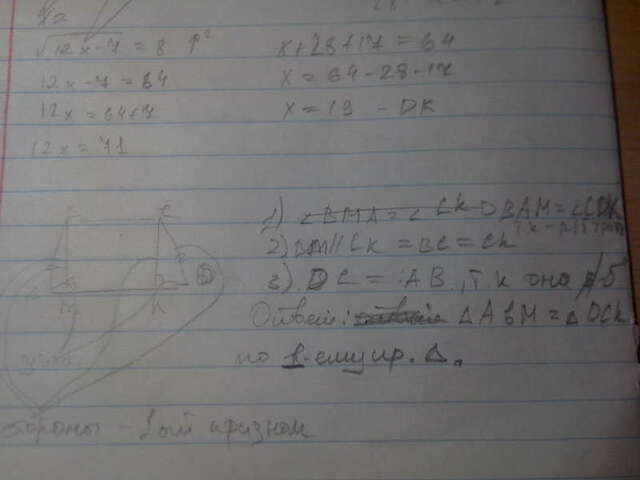 √12x-7 = 8 ↑²
12x-7=64
12x=64+7
12x=71
x+28+17=64
x=64-28-17
x=19 - DK
1) ∠BAM=∠CDK
2) BM||CK = BC = CK
3) DC = AB, т к она р/б
Ответ: △ABM=△DCK
по 1-ому пр. △.
стороны - 1ый признак